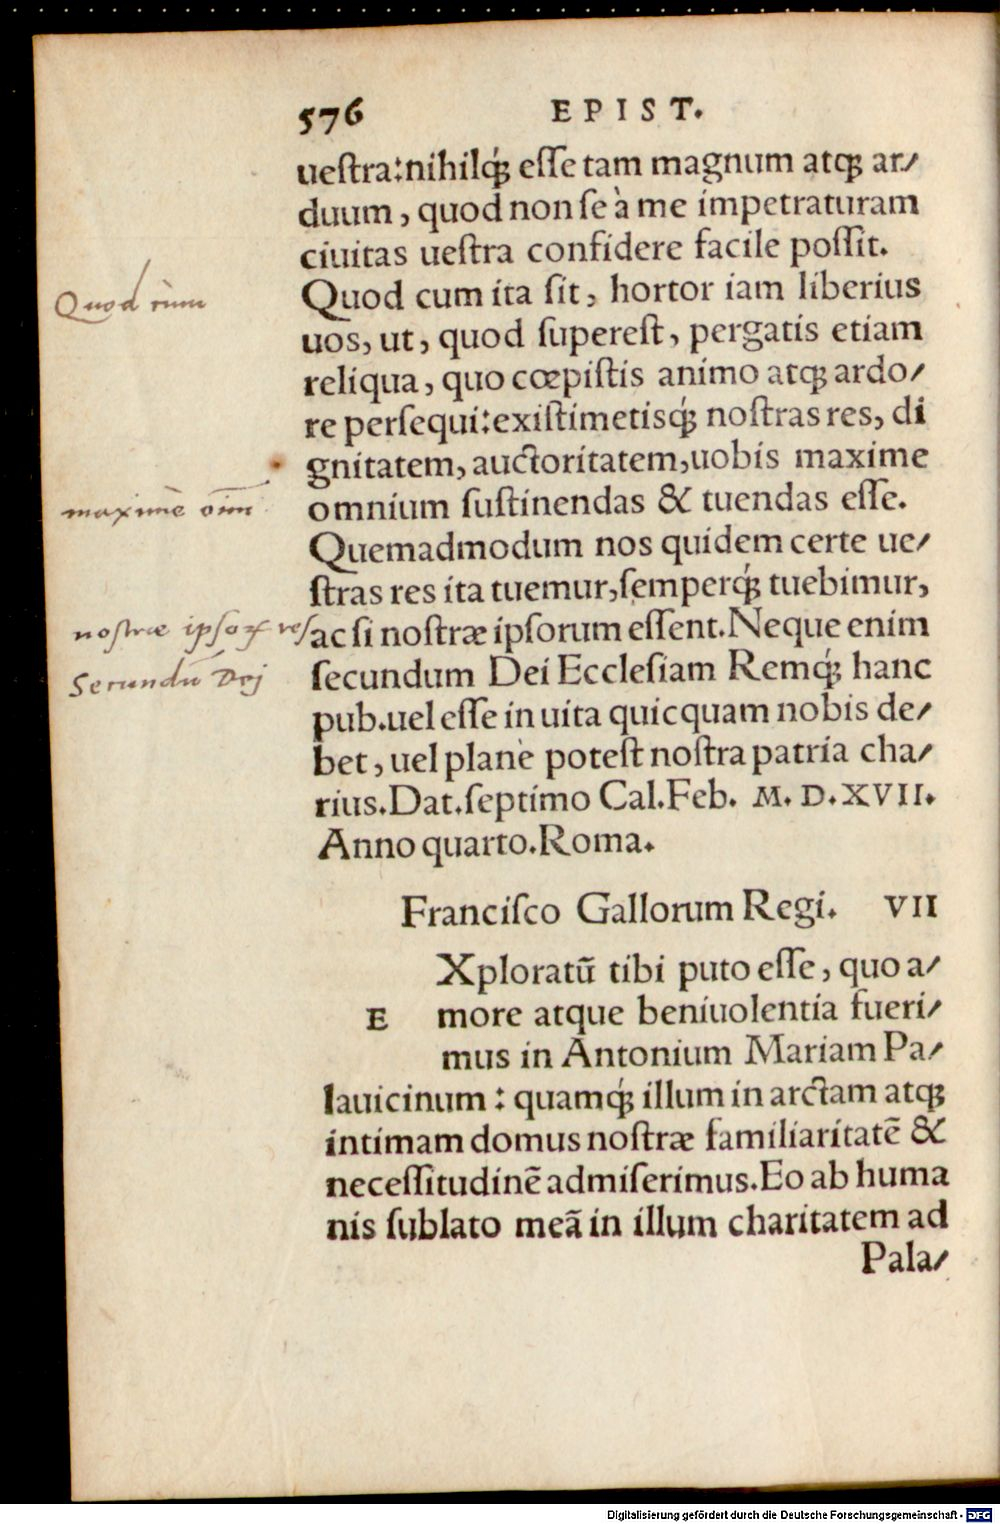 576 EPIST.
ueſtra:nihilq́; eſſe tam magnum atq; ar/
duum, quod non ſe à me impetraturam
ciuitas ueſtra confidere facile poſſit.
Quod cùm
Quod cum ita ſit, hortor iam liberius
uos, ut, quod ſupereſt, pergatis etiam
reliqua, quo cœpiſtis animo atq; ardo/
re perſequi:exiſtimetisq́; noſtras res, di
gnitatem, auctoritatem,uobis maxime
maximè oı̄m
omnium ſuſtinendas & tuendas eſſe.
Quemadmodum nos quidem certe ue/
ſtras res ita tuemur,ſemperq́; tuebimur,
noſtræ ipſoꝝ res
ac ſi noſtræ ipſorum eſſent.Neque enim
Secundū Dej
ſecundum Dei Eccleſiam Remq́; hanc
pub.uel eſſe in uita quicquam nobis de/
bet, uel planè poteſt noſtra patria cha/
rius.Dat.ſeptimo Cal.Feb. M. D. XVII.
Anno quarto.Roma.
Franciſco Gallorum Regi. VII
Xploratū tibi puto eſſe, quo a/
E more atque beniuolentia fueri/
mus in Antonium Mariam Pa/
lauicinum : quamq́; illum in arctam atq;
intimam domus noſtræ familiaritatē &
neceſſitudinē admiſerimus.Eo ab huma
nis ſublato meā in illum charitatem ad
Pala/
Digitalisierung gefördert durch die Deutsche Forschungsgemeinschaft - DFG